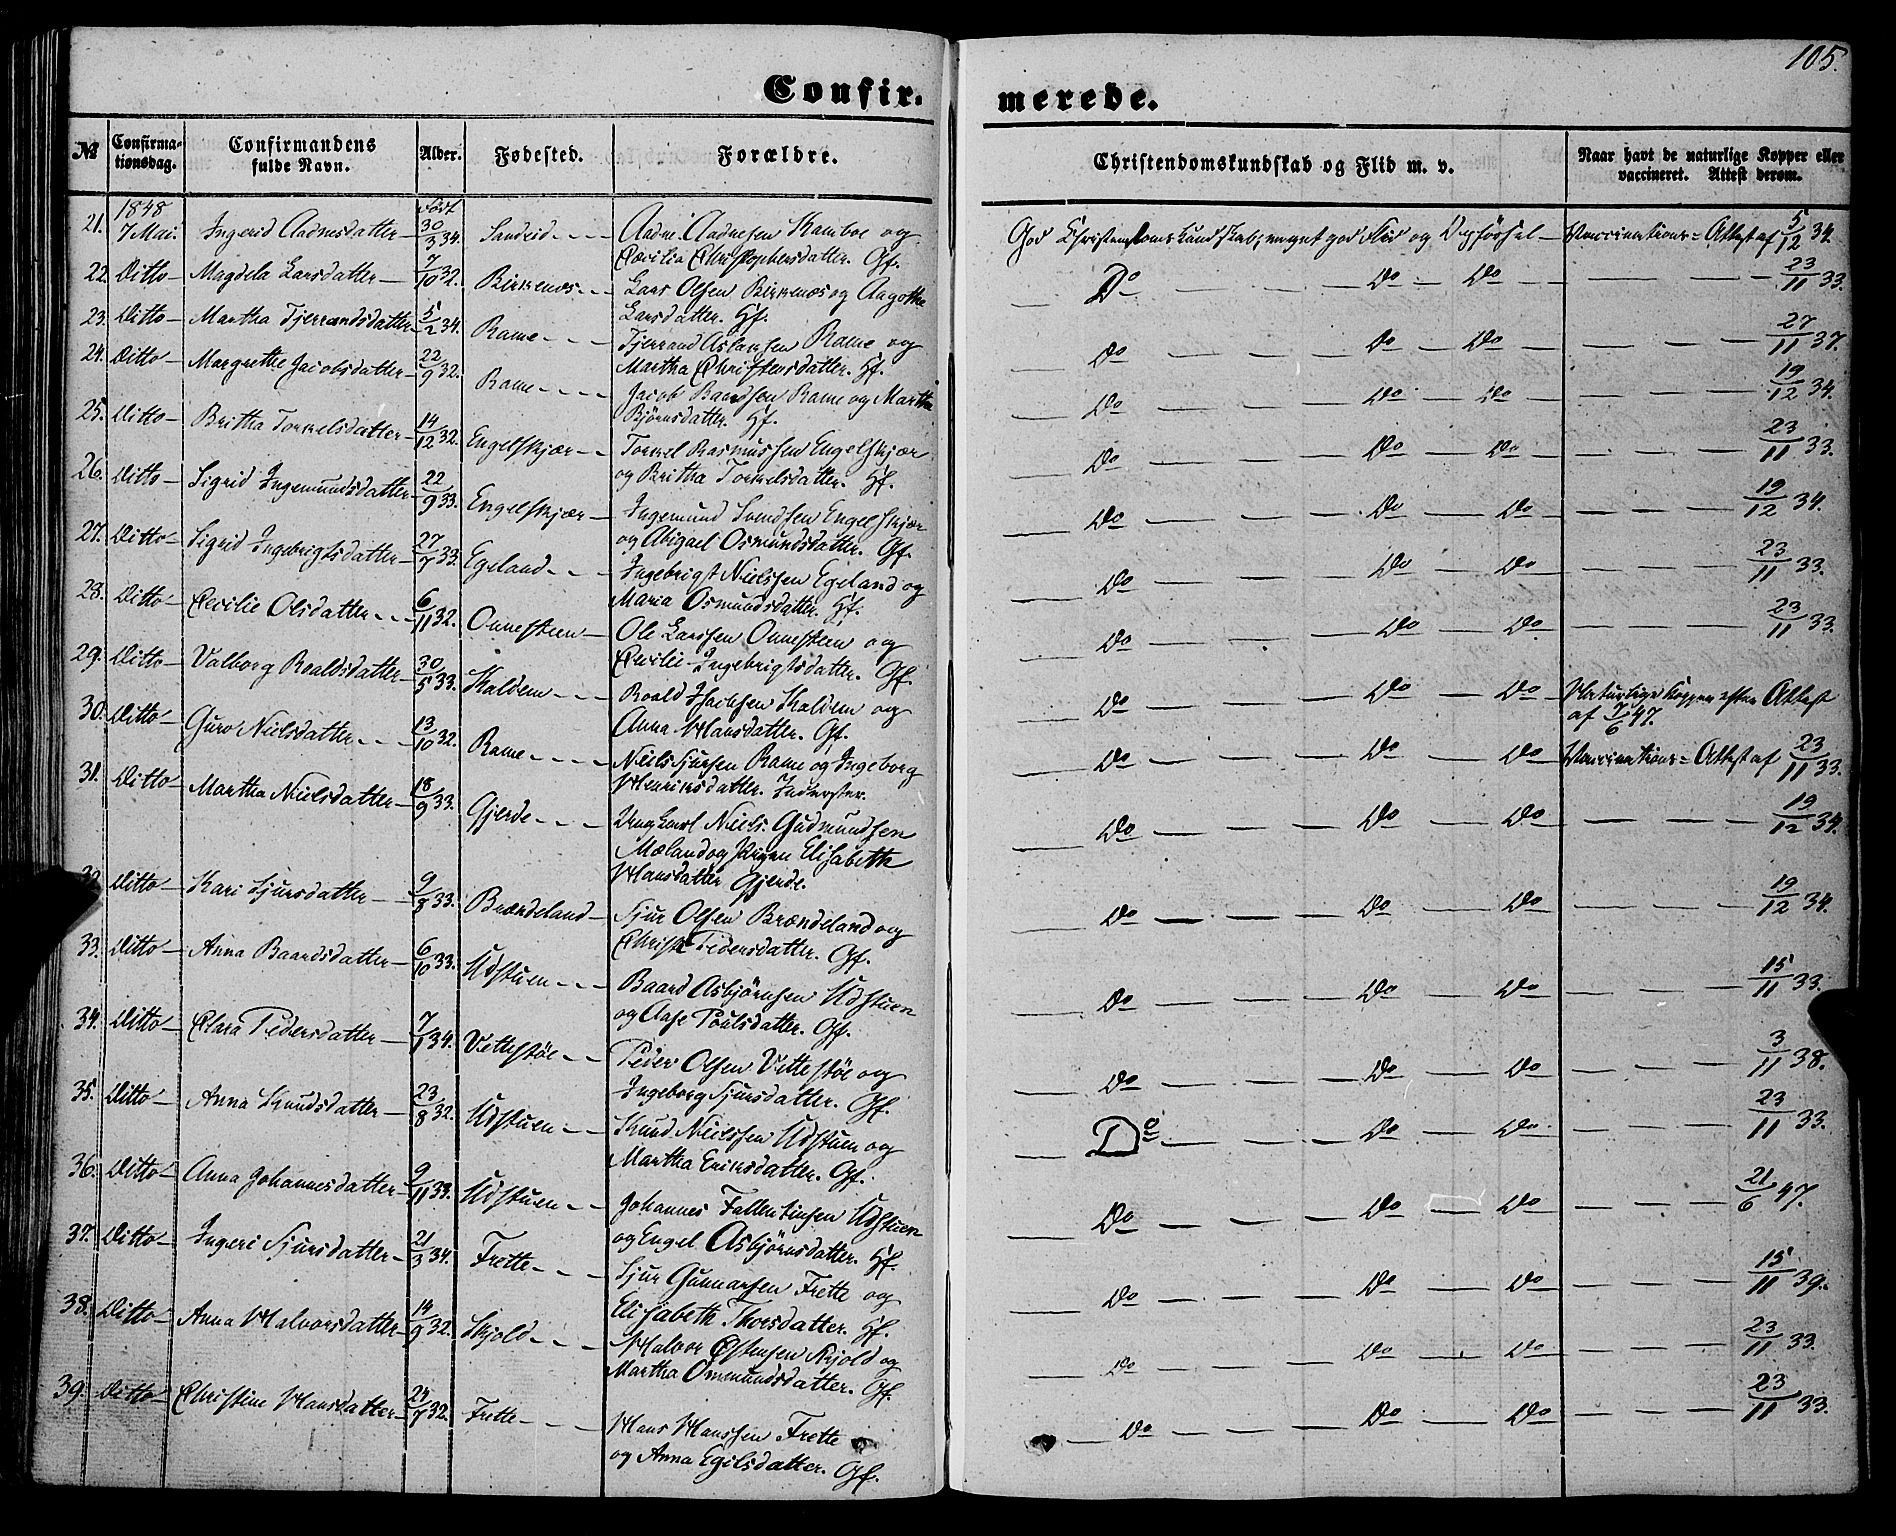 105.
Confirmerede.
No
Confirmationsdag.
Confirmandens fulde Navn.
Alder.
Fødested.
Forældre.
Christendomskundskab og Flid m. v.
Naar havt de naturlige Kopper eller vaccineret. Attest derom.
1848
Født
21. 7 Mai. Ingerid Aadnesdatter 30/3 34. Sandeid Aadne Aadnesen Kamboe og
Cæcilia Christophersdatter. Gf.
God Christendomskundskab, meget god Flid og Opførsel Vaccinations-Attest af 5/12 34.
22. Ditto Magdela Larsdatter 7/10 32. Birkenes Lars Olsen Birkenæs og Aagothe
Larsdatter. Hf.
Do Do Do 23/11 33.
23. Ditto Martha Tjerrandsdatter 5/2 34. Rame Tjerrand Aslaksen Rame og
Martha Christensdatter. Hf.
Do Do Do 27/11 37.
24. Ditto Margrethe Jacobsdatter 22/9 32. Rame Jacob Baardsen Rame og Martha
Bjørnsdatter. Hf.
Do Do Do 19/12 34.
25. Ditto Britha Torkelsdatter 14/12 32. Engelskjær Torkel Rasmussen Engelskjær
og Britha Torkelsdatter. Hf.
Do Do Do 23/11 33.
26. Ditto Sigrid Ingemundsdatter 22/9 33. Engelskjær Ingemund Svendsen Engelskjær
og Abigael Osmundsdatter. Gf.
Do Do Do 19/12 34.
27. Ditto Sigrid Ingebrigtsdatter 27/7 33. Egeland Ingebrigt Nielssen Egeland og
Maria Osmundsdatter. Hf.
Do Do Do 23/11 33.
28. Ditto Cecilie Olsdatter 6/11 32. Onnesteen Ole Larssen Onnesteen og
Cecilie Ingebrigtsdatter. Gf.
Do Do Do 23/11 33.
29. Ditto Valborg Roaldsdatter 30/5 33. Haldem Roald Isachsen Haldem og
Anna Hansdatter. Gf.
Do Do Do Naturlige Kopper efter Attest
af 7/6 47.
30. Ditto Guro Nielsdatter 13/10 32. Rame Niels Sjursen Rame og Ingeborg
Henriksdatter. Inderster.
Do Do Do Vaccinations-Attest af 23/11 33.
31. Ditto Martha Nielsdatter 18/9 33. Gjerde Ungkarl Niels Gudmundsen
Mæland og Pigen Elisabeth
Hansdatter Gjerde.
Do Do Do 19/12 34.
32. Ditto Kari Sjursdatter 9/8 33. Brændeland Sjur Olsen Brændeland og
Christi Pedersdatter. Gf.
Do Do Do 19/12 34.
33. Ditto Anna Baardsdatter 6/10 33. Udstuen Baard Asbjørnsen Udstuen
og Aase Poulsdatter. Gf.
Do Do Do 15/11 33.
34. Ditto Clara Pedersdatter 7/1 34. Vettestøe Peder Olsen Vettestøe og
Ingeborg Sjursdatter. Gf.
Do Do Do 3/11 38.
35. Ditto Anna Knudsdatter 23/8 32. Udstuen Knud Nielssen Udstuen og
Martha Eriksdatter. Gf.
Do Do Do 23/11 33.
36. Ditto Anna Johannesdatter 9/11 33. Udstuen Johannes Fallentinsen Udstuen
og Engel Asbjørnsdatter. Hf.
Do Do Do 21/6 47.
37. Ditto Ingeri Sjursdatter 21/3 34. Frette Sjur Gunnarsen Frette og
Elisabeth Thorsdatter. Hf.
Do Do Do 15/11 39.
38. Ditto Anna Halvorsdatter 14/9 32. Skjold Halvor Østensen Skjold og
Martha Ommundsdatter. Gf.
Do Do Do 23/11 33.
39. Ditto Christine Hansdatter 24/7 32. Frette Hans Hanssen Frette
og Anna Egilsdatter. Gf.
Do Do Do 23/11 33.